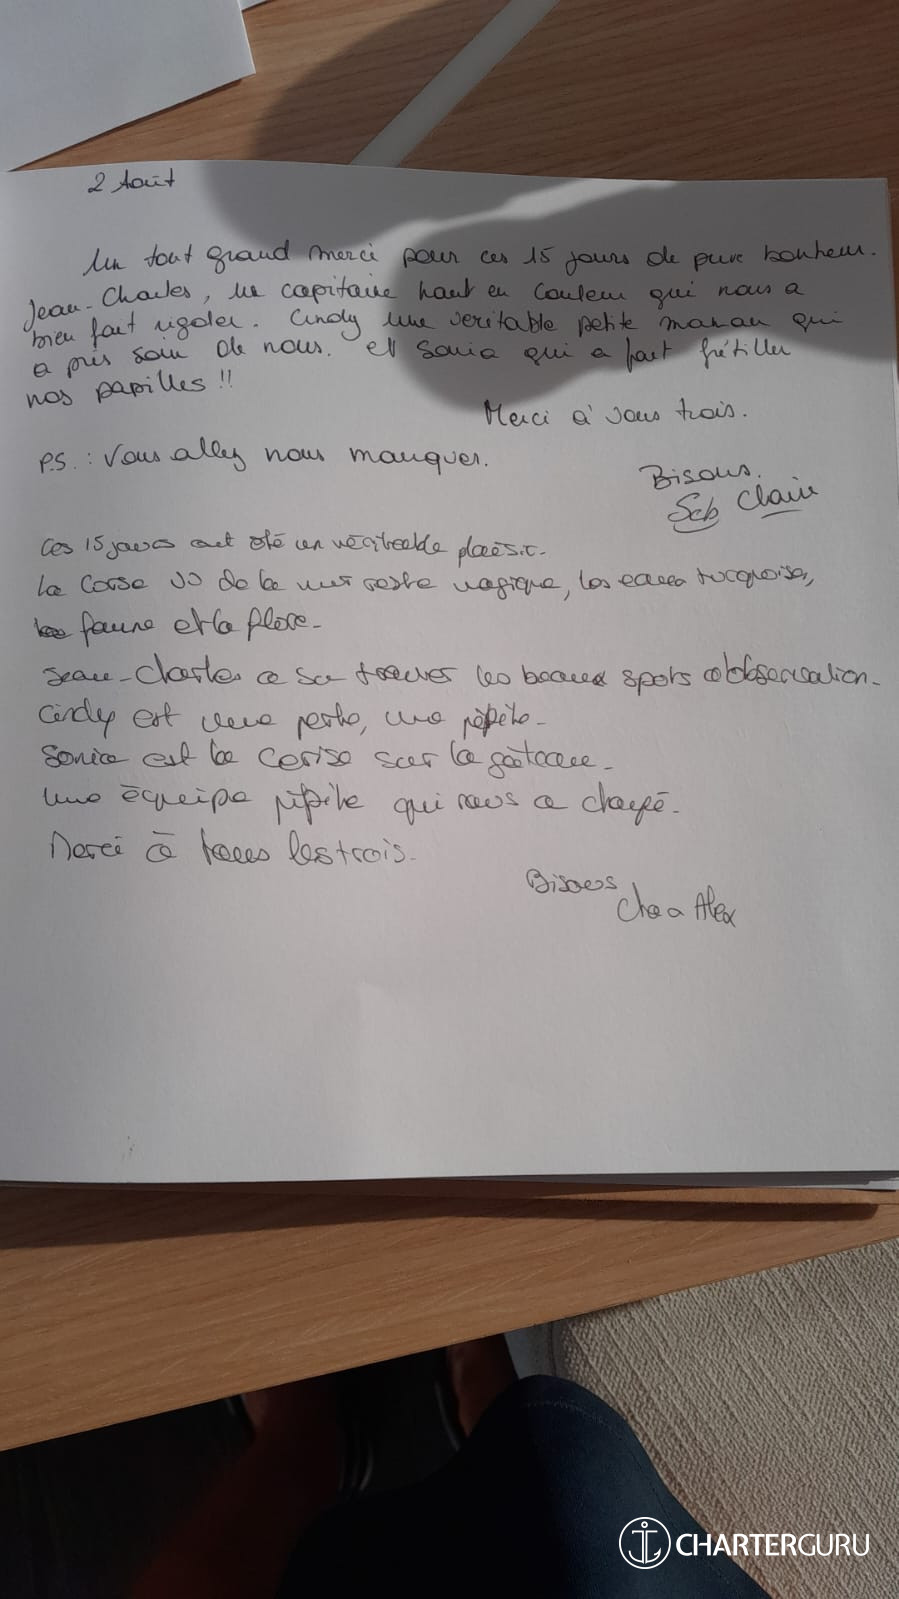 2 Août
Un tout grand merci pour ces 15 jours de pure bonheur.
Jean-Charles, un capitaine haut en couleur qui nous a
bien fait rigoler. Cindy une veritable petite maman qui
a pris soin de nous. et Sonia qui a fait frétiller
nos papilles !!
Merci à vous trois.
P.S. : Vous allez nous manquer.
Bisous.
Seb Claire
Ces 15 jours ont été un véritable plaisir.
La Corse vu de la mer reste magique, les eaux turquoises,
faune et la flore.
Jean-Charles a su trouver les beaux spots d'observation.
Cindy est une perle, une pépite.
Sonia est la cerise sur la gâteau.
Une équipe pépite qui nous a
Merci à tous les trois.
Bisous
Alex
CHARTERGURU